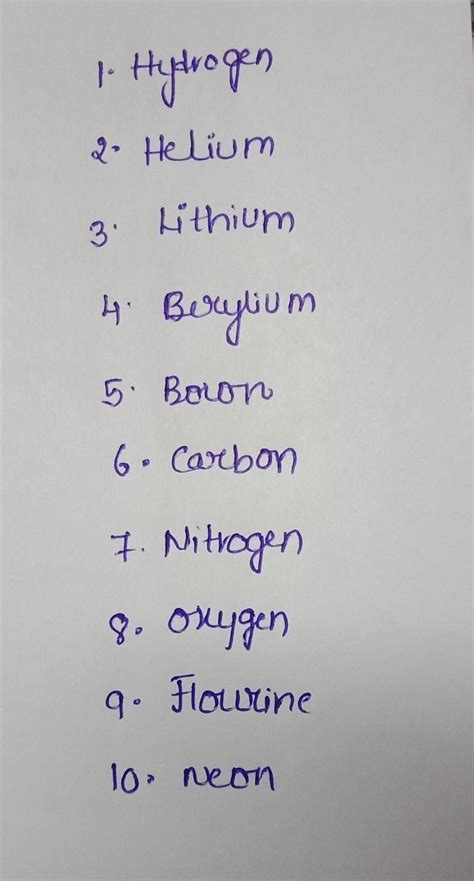 1. Hydrogen
2. Helium
3. Lithium
4. Berylium
5. Boron
6. Carbon
7. Nitrogen
8. Oxygen
9. Flourine
10. Neon